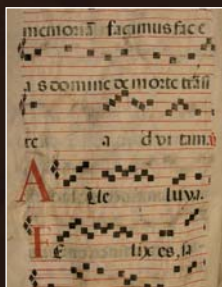 memoriā facimus fac e
as domine de morte trāsi
re a d vi tam
Alle luya.
Fe lix es, sa